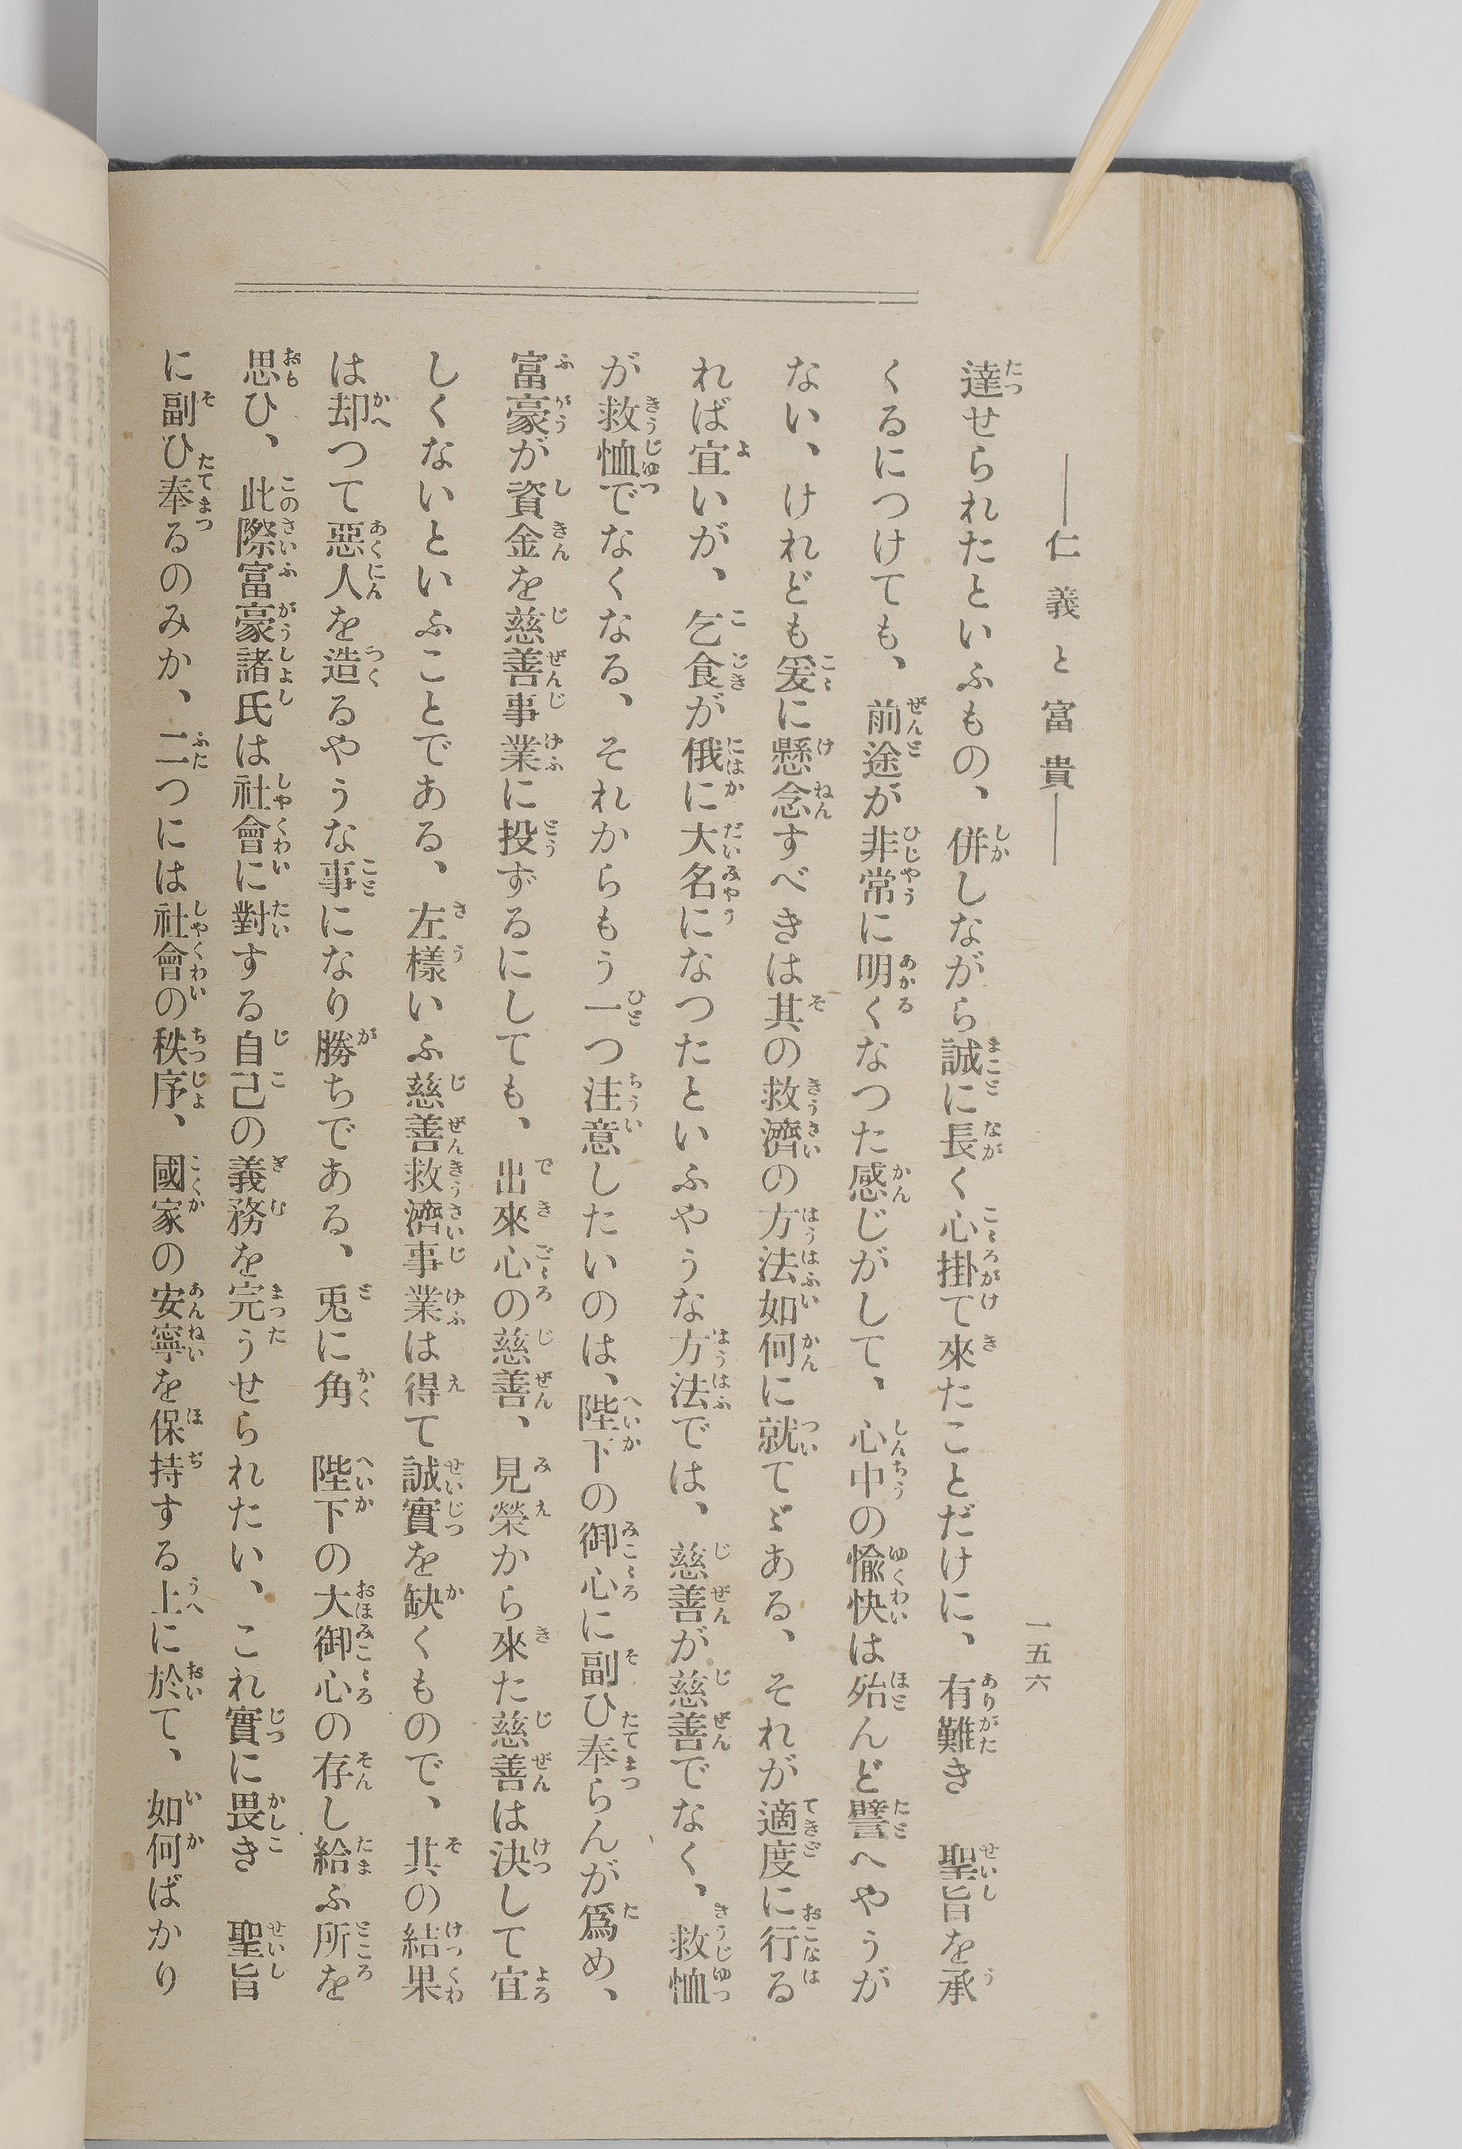 ―仁義と富貴―
一五六
達せられたといふもの、併しながら誠に長く心掛て來たことだけに、有難き　聖旨を承
くるにつけても、前途が非常に明くなつた感じがして、心中の愉快は殆んど譬へやうが
ない、けれども爰に懸念すべきは其の救濟の方法如何に就てゞある、それが適度に行る
れば宜いが、乞食が俄に大名になつたといふやうな方法では、慈善が慈善でなく、救恤
が救恤でなくなる、それからもう一つ注意したいのは、陛下の御心に副ひ奉らんが爲め、
富豪が資金を慈善事業に投ずるにしても、出來心の慈善、見榮から來た慈善は決して宜
しくないといふことである、左樣いふ慈善救濟事業は得て誠實を缺くもので、其の結果
は却つて惡人を造るやうな事になり勝ちである、兎に角　陛下の大御心の存し給ふ所を
思ひ、此際富豪諸氏は社會に對する自己の義務を完うせられたい、これ實に畏き　聖旨
に副ひ奉るのみか、二つには社會の秩序、國家の安寧を保持する上に於て、如何ばかり